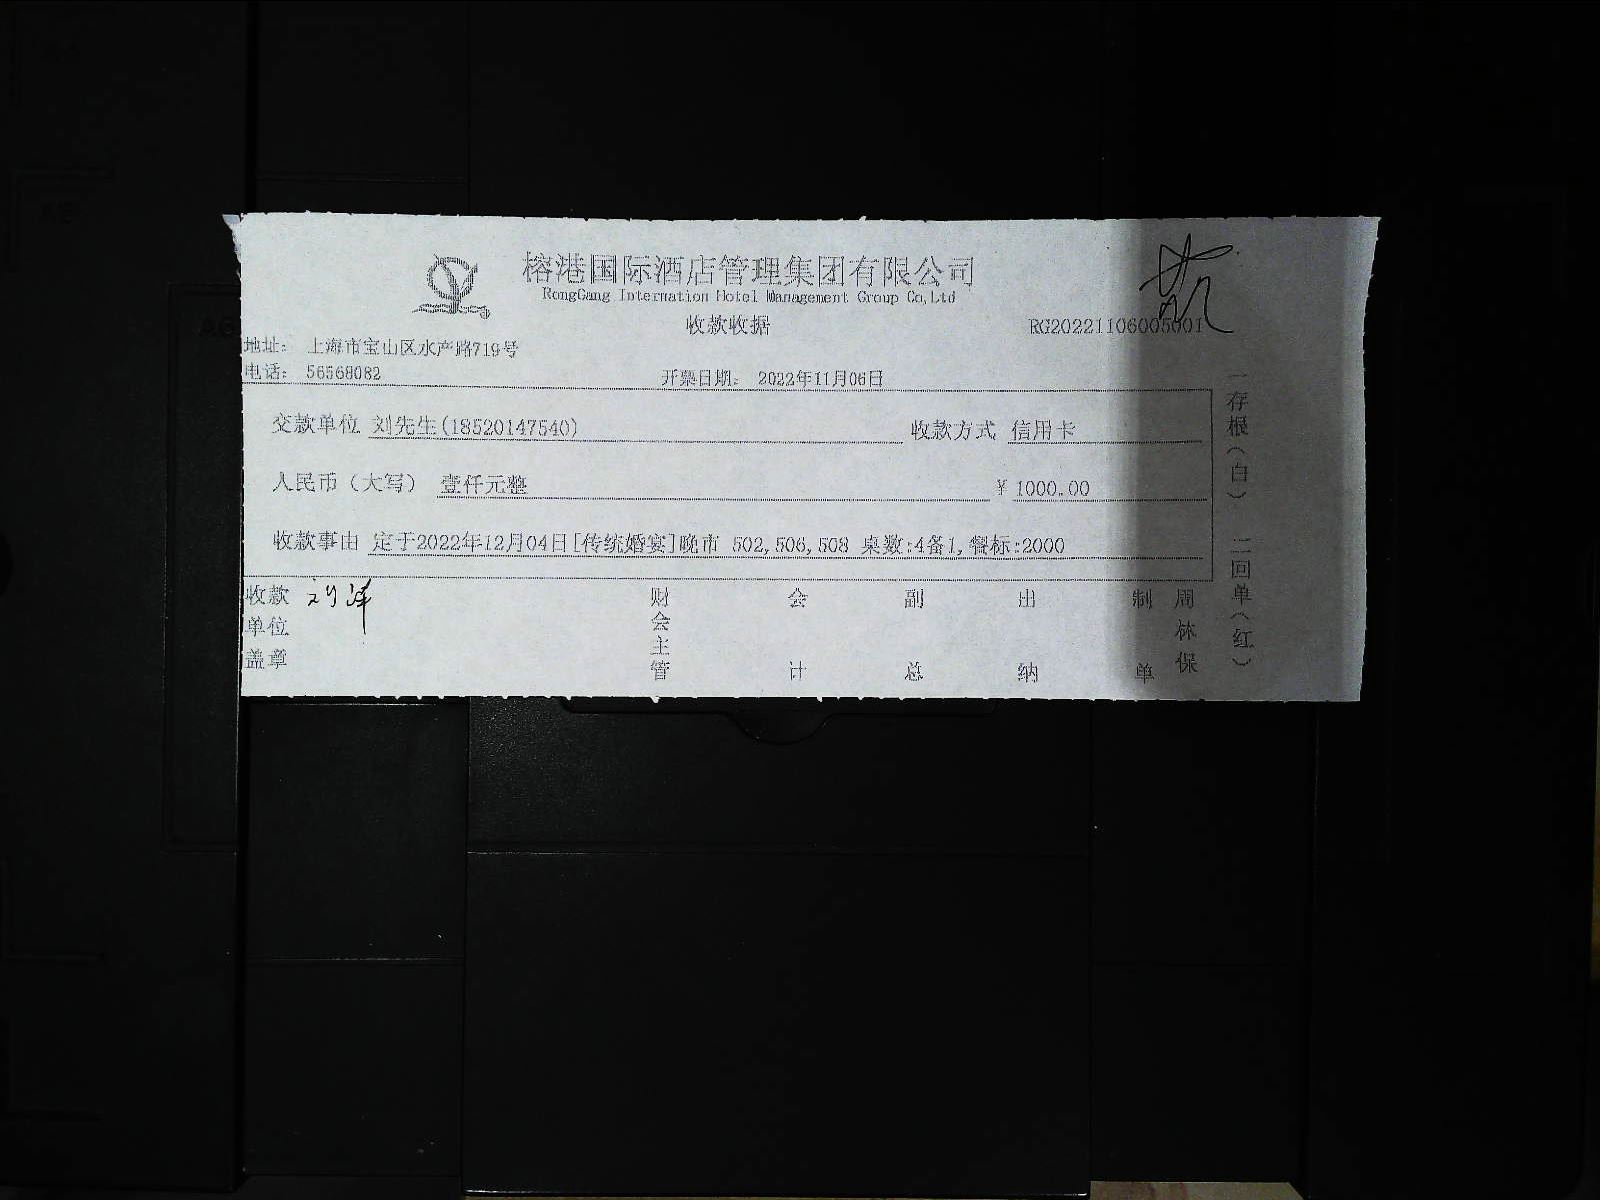 榕港国际酒店管理集团有限公司
RongGang Internation Hotel Management Group Co,Ltd
收款收据
RG20221106005001
地址： 上海市宝山区水产路719号
电话： 56568082
开票日期： 2022年11月06日
交款单位 刘先生(18520147540)
收款方式 信用卡
人民币（大写） 壹仟元整
¥ 1000.00
收款事由 定于2022年12月04日[传统婚宴]晚市 502,506,508 桌数:4备1,餐标:2000
一存根（白） 二回单（红）
收款单位盖章 刘洋
财会主管
会计
副总
出纳
制单 周林保